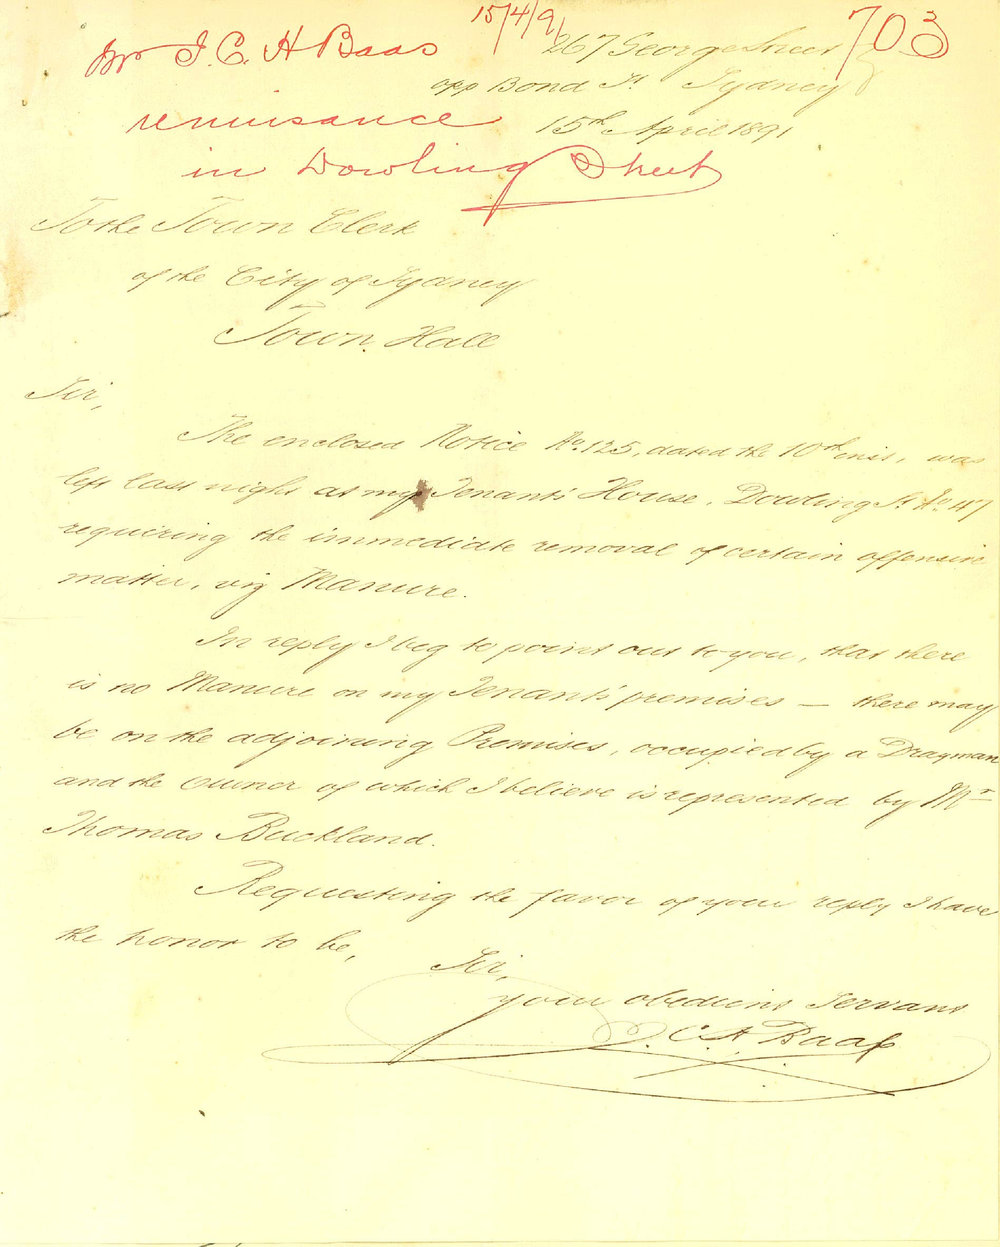 15/4/91
703
Mr J. C. H Baas
re nuisance
in Dowling Street
267 George Street
opp Bond St Sydney
15th April 1891
To the Town Clerk
of the City of Sydney
Town Hall
Sir,
The enclosed Notice No. 125, dated the 10th inst, was
left last night at my Tenants' House, Dowling St No. 417
requiring the immediate removal of certain offensive
matter, viz Manure.
In reply I beg to point out to you, that there
is no Manure on my Tenants' premises — there may
be on the adjoining Premises, occupied by a Drayman
and the Owner of which I believe is represented by Mr
Thomas Buckland.
Requesting the favor of your reply I have
the honor to be,
Sir,
your obedient Servant
J. C. H. Baas